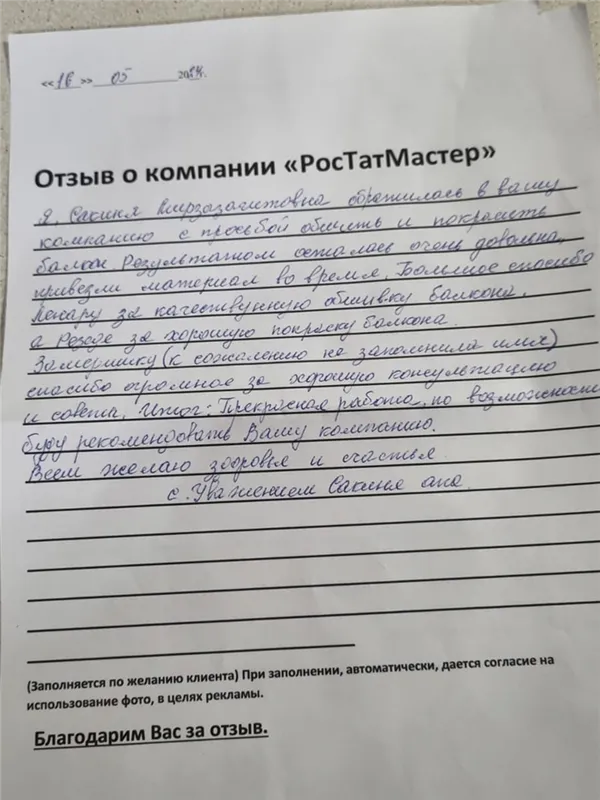 «16» 05 2024г.
Отзыв о компании «РосТатМастер»
Я, Сакиня Мирзазагитовна обратилась в вашу
компанию с просьбой обшить и покрасить
балкон. Результатом осталась очень довольна,
привезли материал во время. Большое спасибо
Ленару за качествунную обшивку балкона,
а Резеде за хорошую покраску балкона.
Замерщику (к сожалению не запомнила имя)
спасибо огромное за хорошую консультацию
и совета, Итог: Прекрасная работа, по возможности
буду рекомендовать Вашу компанию.
Всем желаю здоровья и счастья
с. Уважением Сакиня апа.
(Заполняется по желанию клиента) При заполнении, автоматически, дается согласие на
использование фото, в целях рекламы.
Благодарим Вас за отзыв.